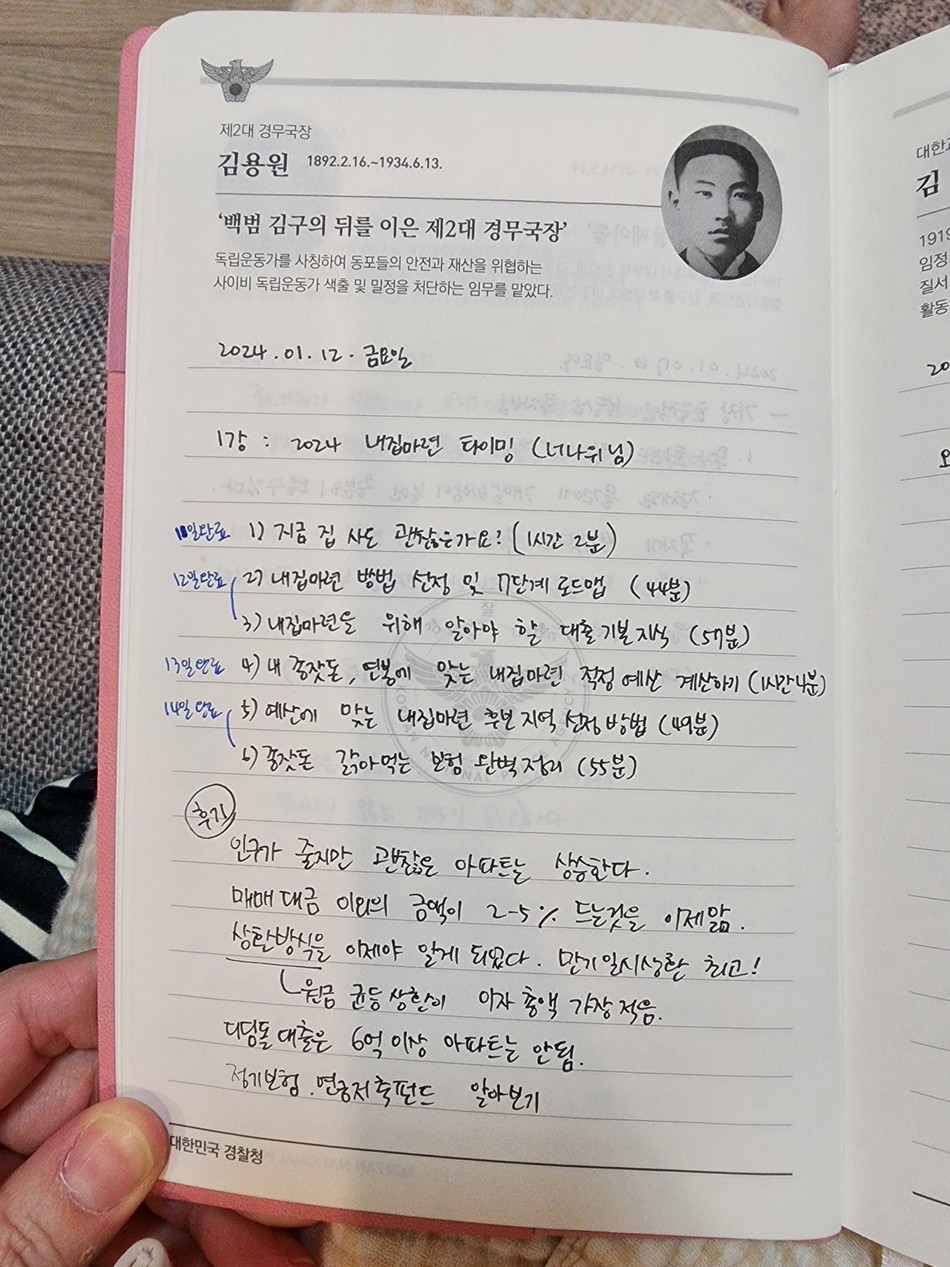 제2대 경무국장
김용원 1892.2.16.~1934.6.13.
‘백범 김구의 뒤를 이은 제2대 경무국장’
독립운동가를 사칭하여 동포들의 안전과 재산을 위협하는
사이비 독립운동가 색출 및 밀정을 처단하는 임무를 맡았다.
2024.01.12. 금요일
1강 : 2024 내집마련 타이밍 (너나위님)
일완료 1) 지금 집 사도 괜찮은가요? (1시간 2분)
12일완료 2) 내집마련 방법 선정 및 7단계 로드맵 (44분)
3) 내집마련을 위해 알아야 할 대출 기본지식 (57분)
13일완료 4) 내 종잣돈, 연봉에 맞는 내집마련 적정 예산 계산하기 (1시간4분)
14일완료 5) 예산에 맞는 내집마련 후보지역 선정 방법 (49분)
6) 종잣돈 갉아먹는 보험 완벽정리 (55분)
후기
인구가 줄지만 괜찮은 아파트는 상승한다.
매매대금 이외의 금액이 2-5% 드는것을 이제 앎.
상환방식을 이제야 알게 되었다. 만기일시상환 최고!
원금 균등상환이 이자 총액 가장 적음.
디딤돌대출은 6억 이상 아파트는 안됨.
정기보험. 연금저축펀드 알아보기
대한민국 경찰청
김
1919
임정
질서
활동
20